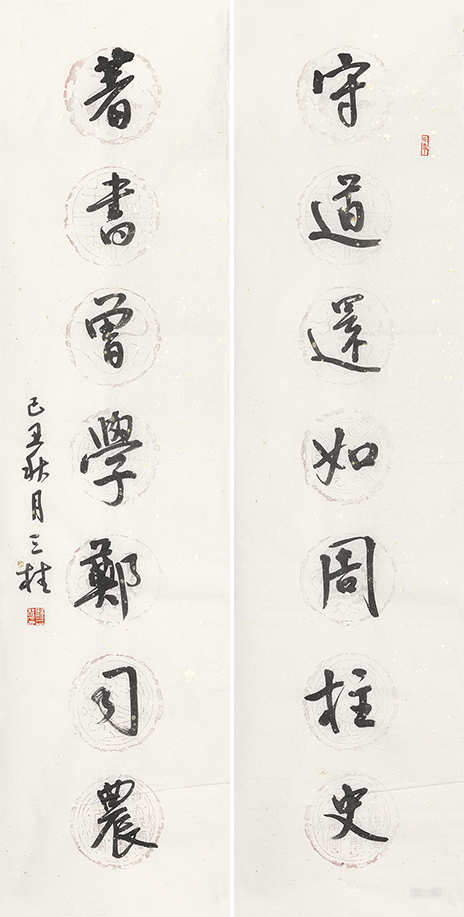 守道還如周柱史
著書曾學鄭司農
己丑秋月三桂